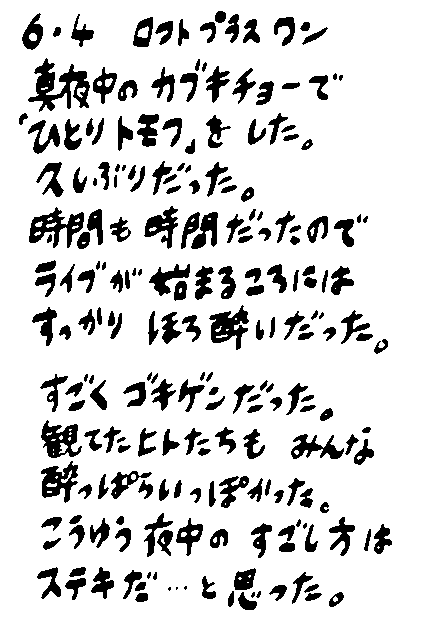 6・4 ロフトプラスワン
真夜中のカブキチョーで
「ひとりトモフ」をした。
久しぶりだった。
時間も時間だったので
ライブが始まるころには
すっかりほろ酔いだった。
すごくゴキゲンだった。
観てたヒトたちもみんな
酔っぱらいっぽかった。
こうゆう夜中のすごし方は
ステキだ…と思った。